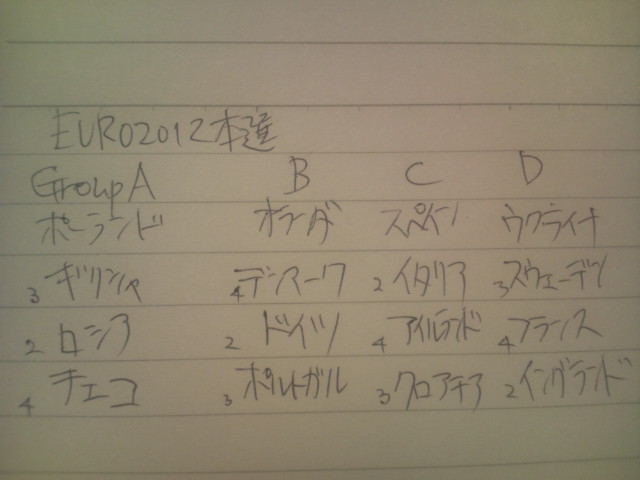 EURO2012本選
Group A B C D
ポーランド オランダ スペイン ウクライナ
3 ギリシャ 4 デンマーク 2 イタリア 3 スウェーデン
2 ロシア 2 ドイツ 4 アイルランド 4 フランス
4 チェコ 3 ポルトガル 3 クロアチア 2 イングランド